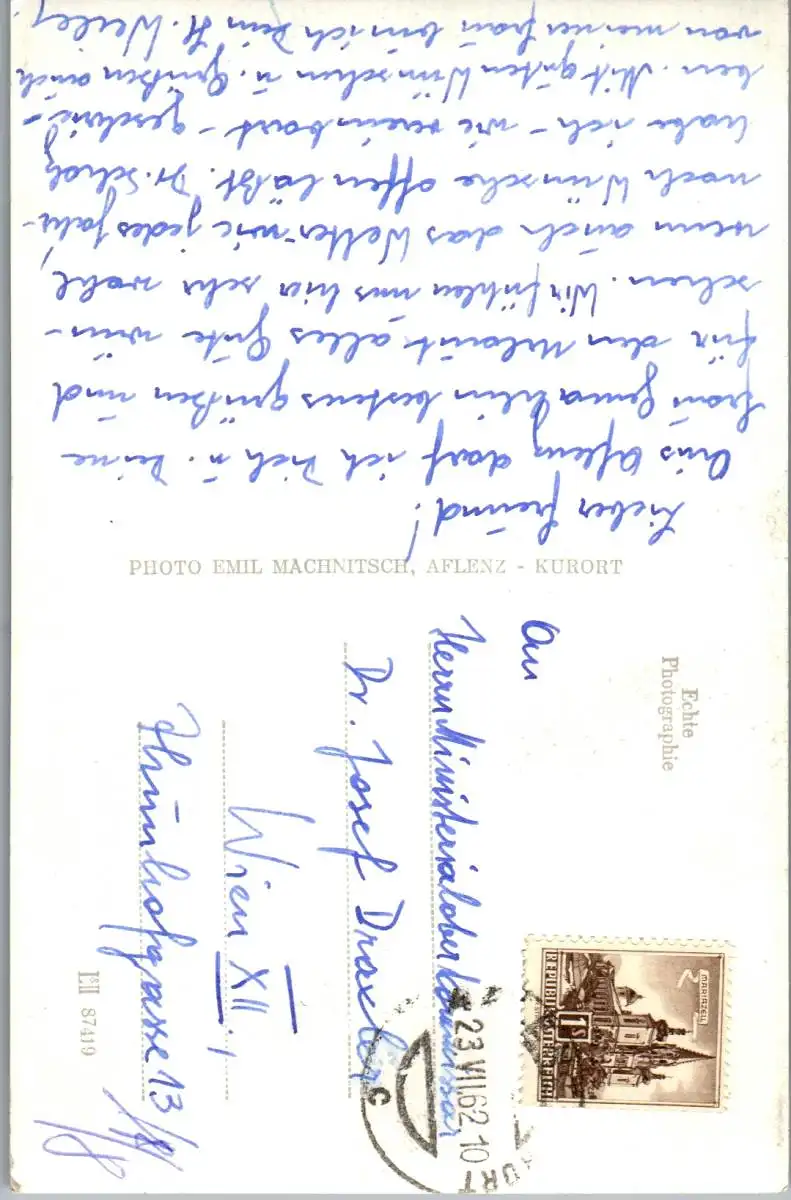 Lieber Freund!
Aus Aflenz darf ich Dich u. Deine
Frau Gemahlin bestens grüßen und
für den Urlaub alles Gute wün-
schen. Wir fühlen uns hier sehr wohl,
wenn auch das Wetter wie jedes Jahr
noch Wünsche offen läßt. Dr. Scholz
habe ich - wie vereinbart - geschrie-
ben. Mit guten Wünschen u. Grüßen auch
von meiner Frau bin ich Dein H. Weiler
PHOTO EMIL MACHNITSCH, AFLENZ - KURORT
Echte
Photographie
An
Herrn Ministerialoberkommissär
Dr. Josef Draxler
Wien XII.,
13
L II 87419
MARIAZELL
1S
REPUBLIK ÖSTERREICH
23.VII.62.10
C
ORT